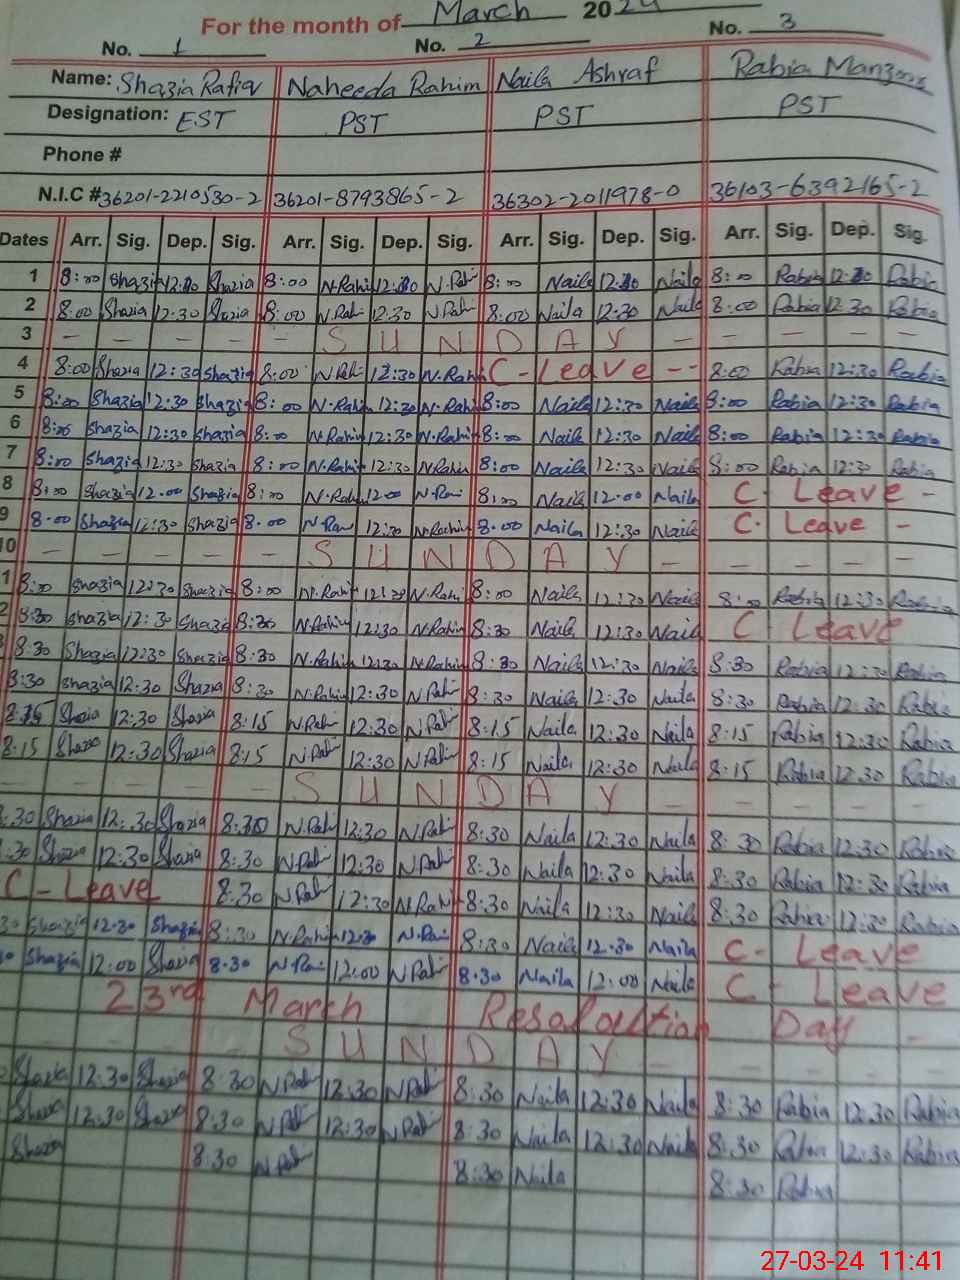 For the month of March 2024
No. 1 No. 2 No. 3
Name: Shazia Rafiq Naheeda Rahim Naila Ashraf Rabia Manzoor
Designation: EST PST PST PST
Phone #
N.I.C # 36201-2210530-2 36201-8793865-2 36302-2011978-0 36103-6392165-2
Dates Arr. Sig. Dep. Sig. Arr. Sig. Dep. Sig. Arr. Sig. Dep. Sig. Arr. Sig. Dep. Sig.
1 8:00 Shazia 12:30 Shazia 8:00 N.Rahi 12:30 N.Rahi 8:00 Naila 12:30 Naila 8:00 Rabia 12:30 Rabia
2 8:00 Shazia 12:30 Shazia 8:00 N.Rahi 12:30 N.Rahi 8:00 Naila 12:30 Naila 8:00 Rabia 12:30 Rabia
3 - - - - - S U N D A Y - - - - -
4 8:00 Shazia 12:30 Shazia 8:00 N.Rahi 12:30 N.Rahi C-Leave -- 8:00 Rabia 12:30 Rabia
5 8:00 Shazia 12:30 Shazia 8:00 N.Rahi 12:30 N.Rahi 8:00 Naila 12:30 Naila 8:00 Rabia 12:30 Rabia
6 8:00 Shazia 12:30 Shazia 8:00 N.Rahi 12:30 N.Rahi 8:00 Naila 12:30 Naila 8:00 Rabia 12:30 Rabia
7 8:00 Shazia 12:30 Shazia 8:00 N.Rahi 12:30 N.Rahi 8:00 Naila 12:30 Naila 8:00 Rabia 12:30 Rabia
8 8:00 Shazia 12:00 Shazia 8:00 N.Rahi 12:00 N.Rai 8:00 Naila 12:00 Naila C. Leave -
9 8:00 Shazia 12:30 Shazia 8:00 N.Rai 12:30 N.Rahi 8:00 Naila 12:30 Naila C. Leave -
10 - - - - - S U N D A Y - - - - -
1 8:00 Shazia 12:30 Shazia 8:00 N.Rahi 12:30 N.Rahi 8:00 Naila 12:30 Naila 8:00 Rabia 12:30 Rabia
2 8:30 Shazia 12:30 Shazia 8:30 N.Rahim 12:30 N.Rahi 8:30 Naila 12:30 Naila C Leave
8:30 Shazia 12:30 Shazia 8:30 N.Rahim 12:30 N.Rahim 8:30 Naila 12:30 Naila 8:30 Rabia 12:30 Rabia
8:30 Shazia 12:30 Shazia 8:30 N.Rahim 12:30 N.Rahi 8:30 Naila 12:30 Naila 8:30 Rabia 12:30 Rabia
8:15 Shazia 12:30 Shazia 8:15 N.Rahi 12:30 N.Rahi 8:15 Naila 12:30 Naila 8:15 Rabia 12:30 Rabia
8:15 Shazia 12:30 Shazia 8:15 N.Rahi 12:30 N.Rahi 8:15 Naila 12:30 Naila 8:15 Rabia 12:30 Rabia
- - - - - S U N D A Y - - - - -
:30 Shazia 12:30 Shazia 8:30 N.Rahi 12:30 N.Rahi 8:30 Naila 12:30 Naila 8:30 Rabia 12:30 Rabia
:30 Shazia 12:30 Shazia 8:30 N.Rahi 12:30 N.Rahi 8:30 Naila 12:30 Naila 8:30 Rabia 12:30 Rabia
C-Leave 8:30 N.Rahi 12:30 N.Rahi 8:30 Naila 12:30 Naila 8:30 Rabia 12:30 Rabia
30 Shazia 12:30 Shazia 8:30 N.Rahim 12:30 N.Rai 8:30 Naila 12:30 Naila C- Leave
0 Shazia 12:00 Shazia 8:30 N.Rai 12:00 N.Rahi 8:30 Naila 12:00 Naila C- Leave
23rd March Resoloution Day -
- - - - S U N D A Y - - - - -
Shazia 12:30 Shazia 8:30 N.Rahi 12:30 N.Rahi 8:30 Naila 12:30 Naila 8:30 Rabia 12:30 Rabia
Shazia 12:30 Shazia 8:30 N.Rahi 12:30 N.Rahi 8:30 Naila 12:30 Naila 8:30 Rabia 12:30 Rabia
Shazia 8:30 N.Rahi 8:30 Naila 8:30 Rabia
27-03-24 11:41